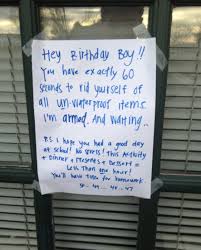 Hey Birthday Boy!!
You have exactly 60
seconds to rid yourself of
all un-waterproof items.
I'm armed. And waiting..
P.S. I hope you had a good day
at school! No stress! This Activity
+ Dinner + Presents + Dessert =
Less Than one hour!
You'll have time for homework
50 - 49 - 48 - 47